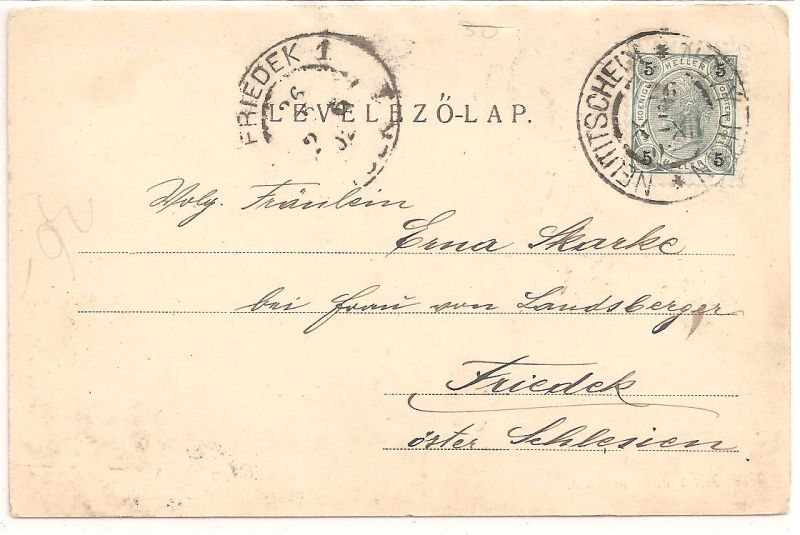 FRIEDEK 1
26
NEUTITSCHEIN
5 HELLER 5
5 5
LEVELEZŐ-LAP.
Wolg. Fräulein
Erna Skarke
bei Frau von Landsberger
Friedek
öster Schlesien